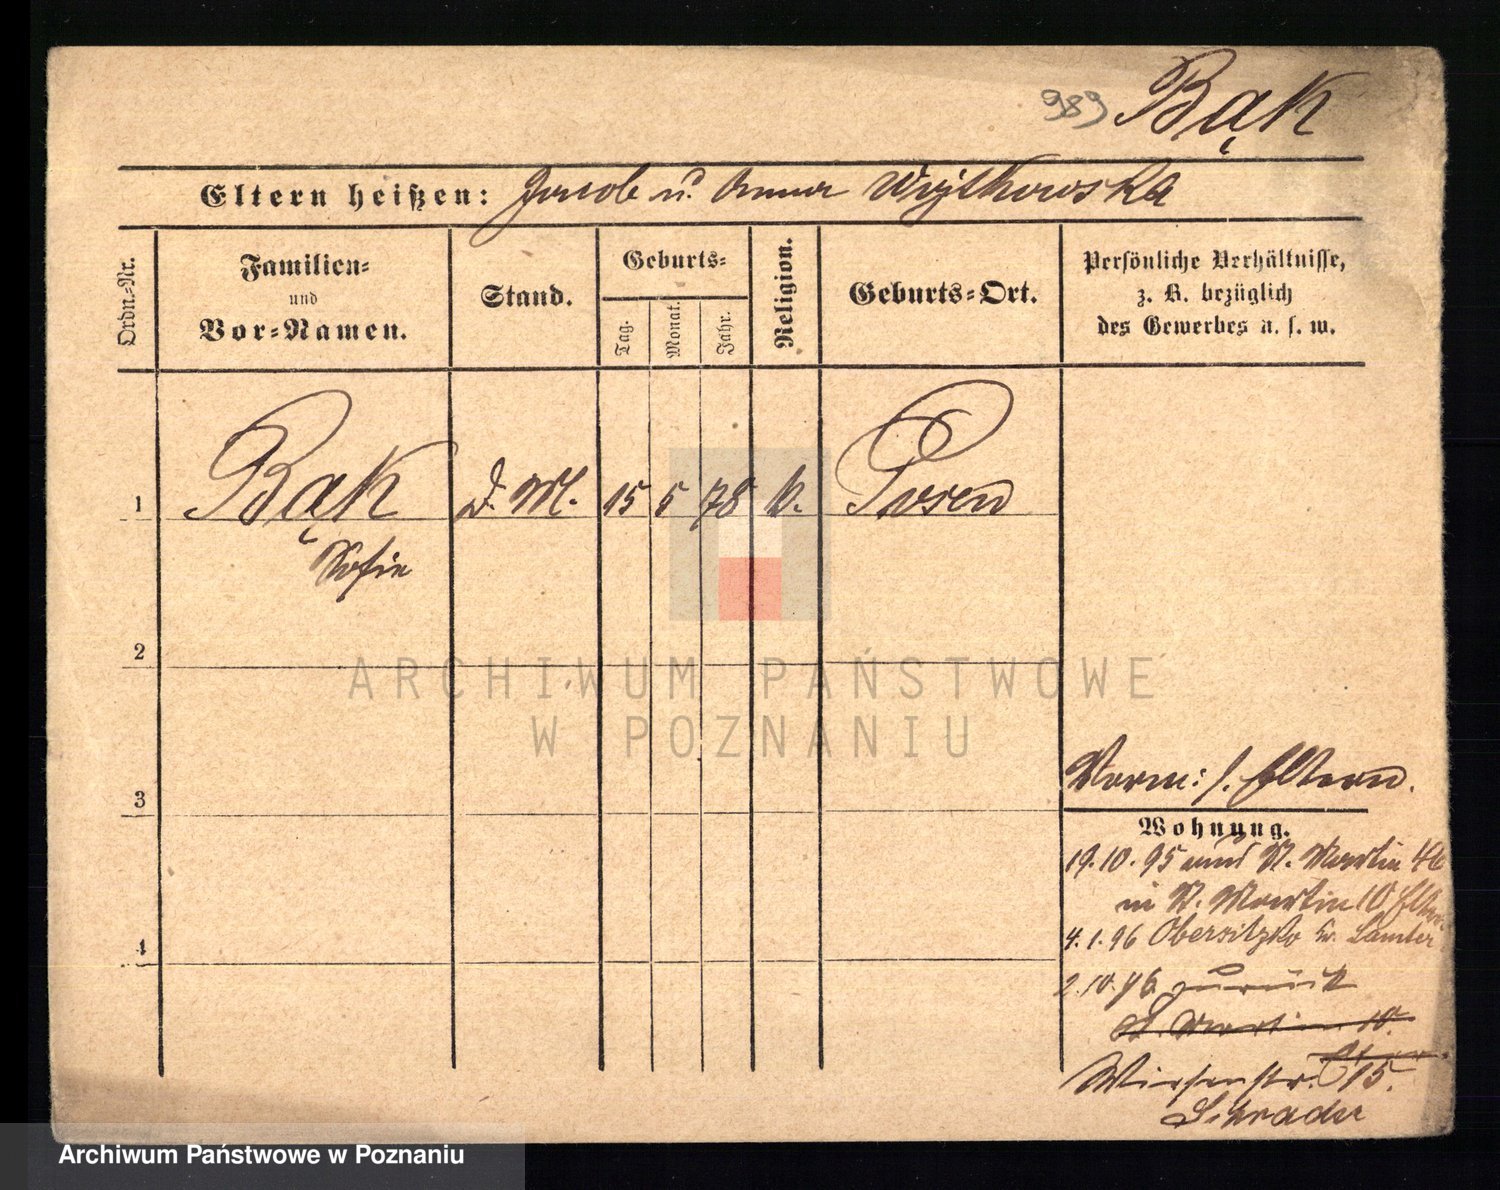 989 Bąk
Eltern heißen: Jacob u. Anna Wojtkowska
Ordn.-Nr.
Familien-
und
Vor-Namen.
Stand.
Geburts-
Tag.
Monat.
Jahr.
Religion.
Geburts-Ort.
Persönliche Verhältnisse,
z. B. bezüglich
des Gewerbes u. s. w.
1 Bąk D. M. 15 5 78 k. Posen
Sofie
2
ARCHIWUM PAŃSTWOWE
W POZNANIU
3
Vorm: s. Eltern.
Wohnung.
19.10.95 St. Martin 46
in St. Martin 10 Eltern
4.1.96 Obersitzko Kr. Samter
2.10.96 zurück
St. Martin 10.
Wiesenstr. 15.
Schrader
4
Archiwum Państwowe w Poznaniu